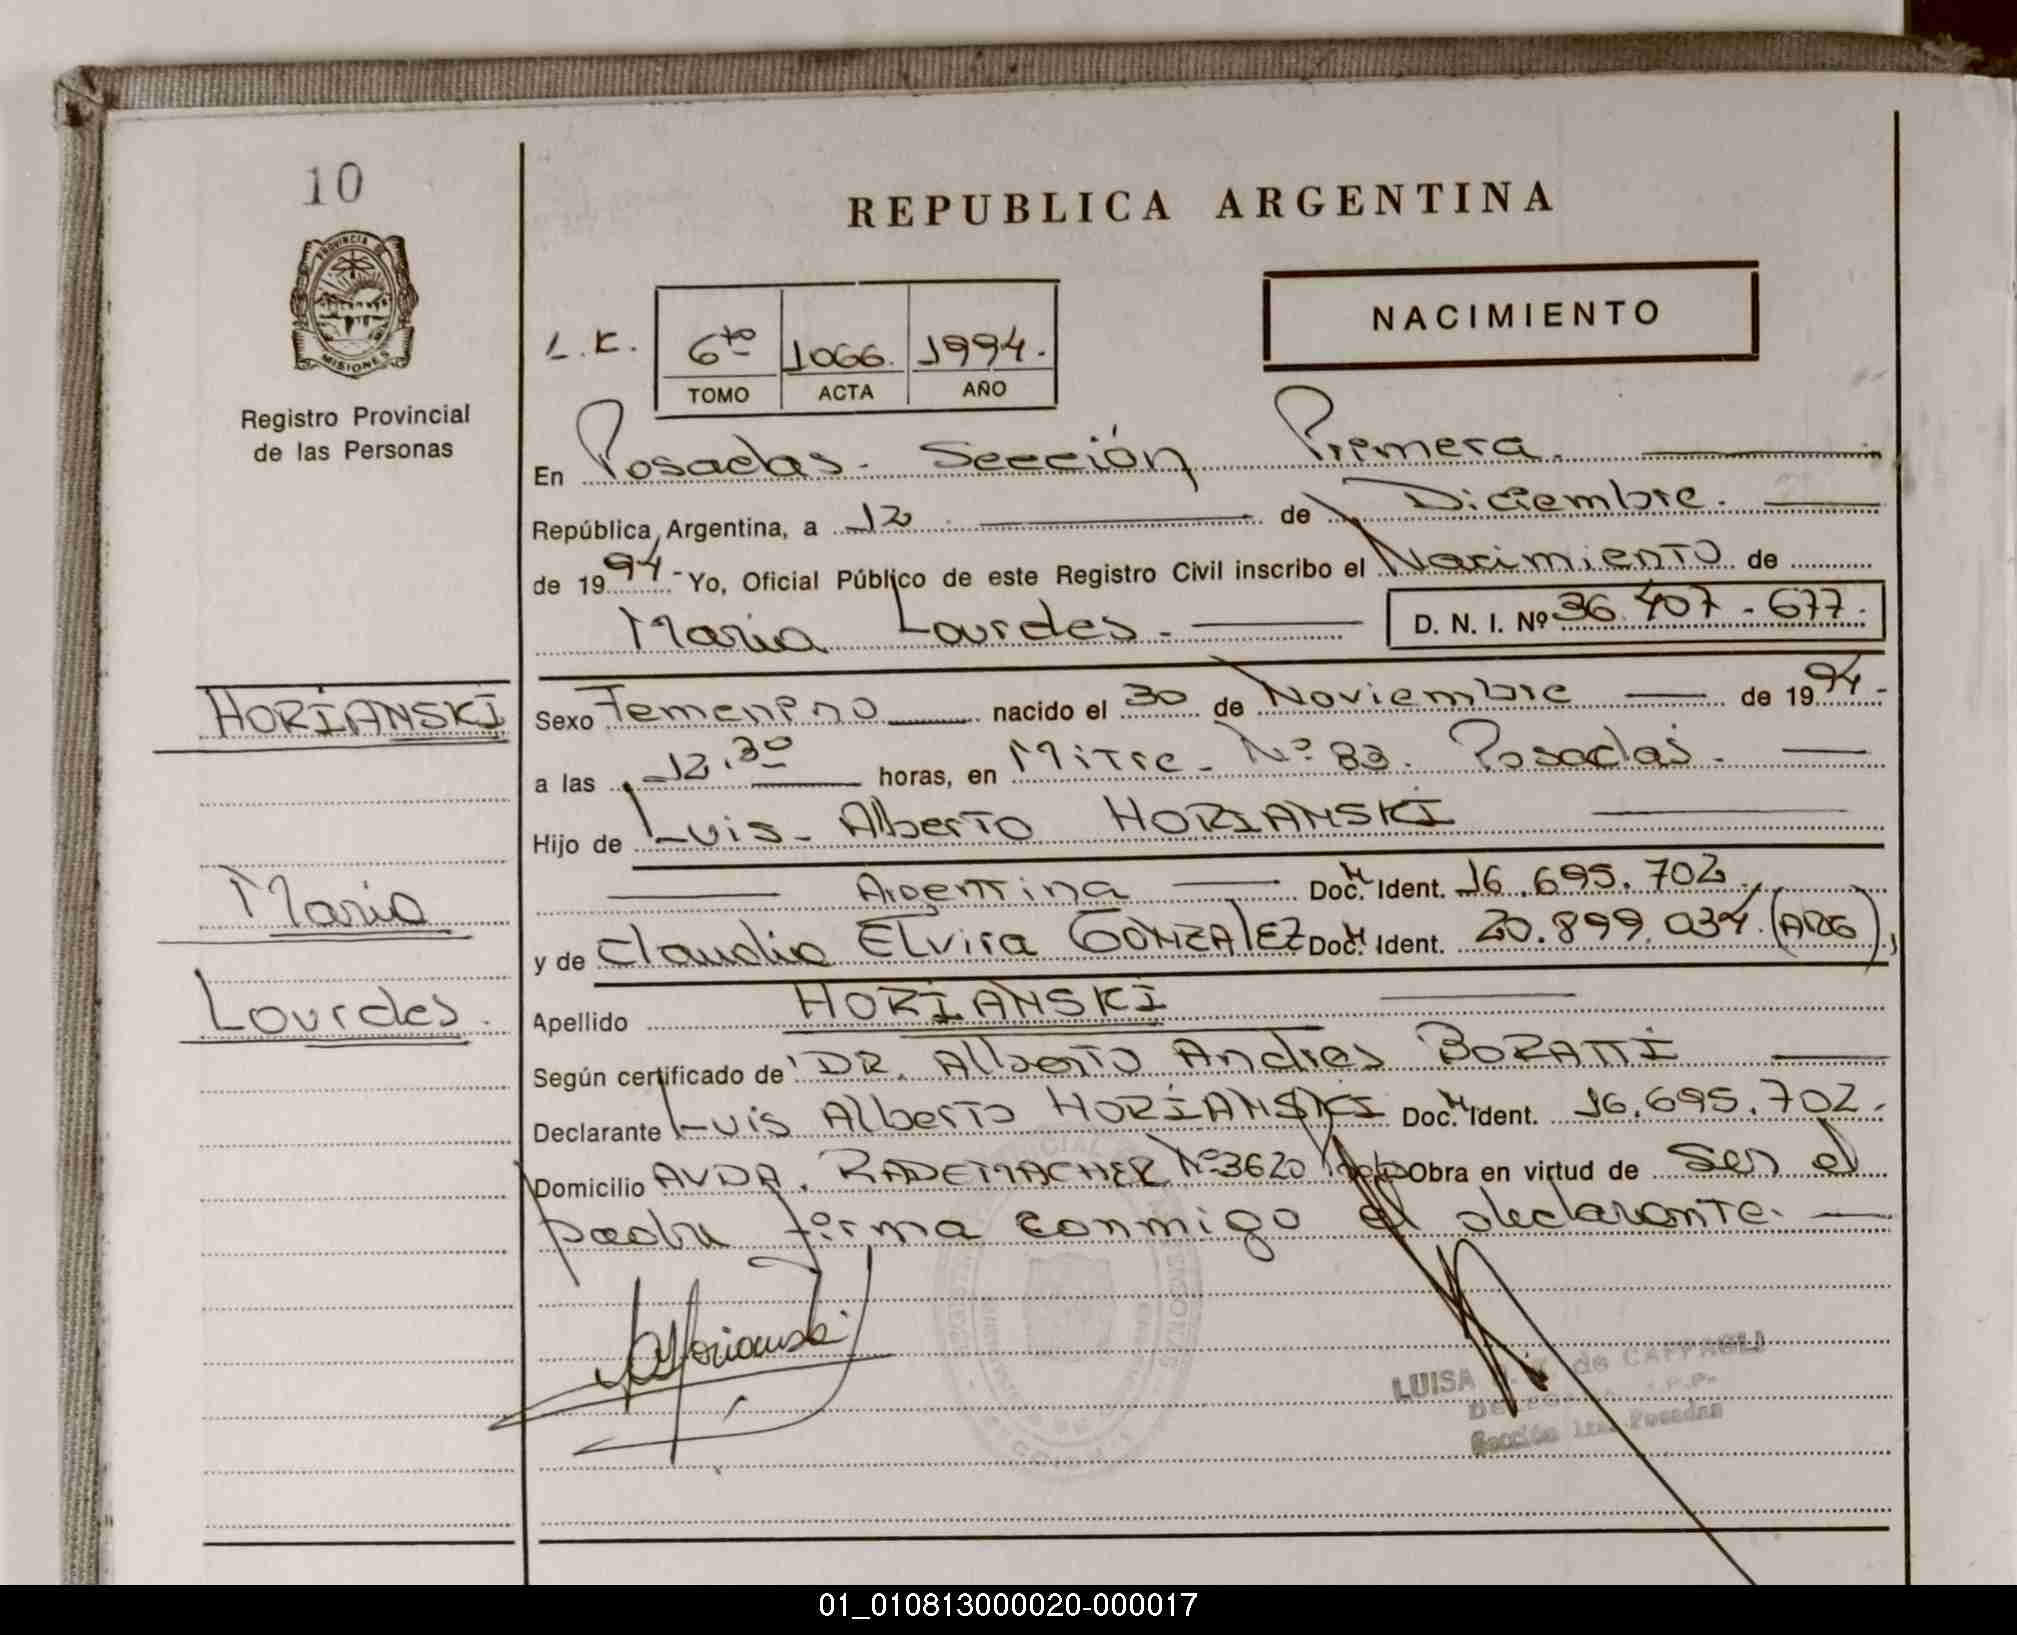 10
PROVINCIA DE
MISIONES
Registro Provincial
de las Personas
REPUBLICA ARGENTINA
NACIMIENTO
L.K.
6to 1066. 1994.
TOMO ACTA AÑO
En Posadas. Sección Primera.
República Argentina, a 12 de Diciembre.
de 1994- Yo, Oficial Público de este Registro Civil inscribo el Nacimiento de
Maria Lourdes.- D. N. I. Nº 36.407.677.
HORIANSKI
Sexo Femenino nacido el 30 de Noviembre de 1994.-
a las 12.30 horas, en Mitre- Nº 83. Posadas.
Hijo de Luis- Alberto HORIANSKI
Argentina Doc. M Ident. 16.695.702.
Maria
y de Claudia Elvira GONZALEZ Doc. M Ident. 20.899.034. (ARG),
Lourdes.
Apellido HORIANSKI
Según certificado de DR. Alberto Andres BORATTI
Declarante Luis Alberto HORIANSKI Doc. M Ident. 16.695.702.
Domicilio AVDA. RADEMACHER Nº 3620 Obra en virtud de ser el
padre firma conmigo el declarante.
LUISA de CAPPAGLI
Sección 1ra. Posadas
01_010813000020-000017